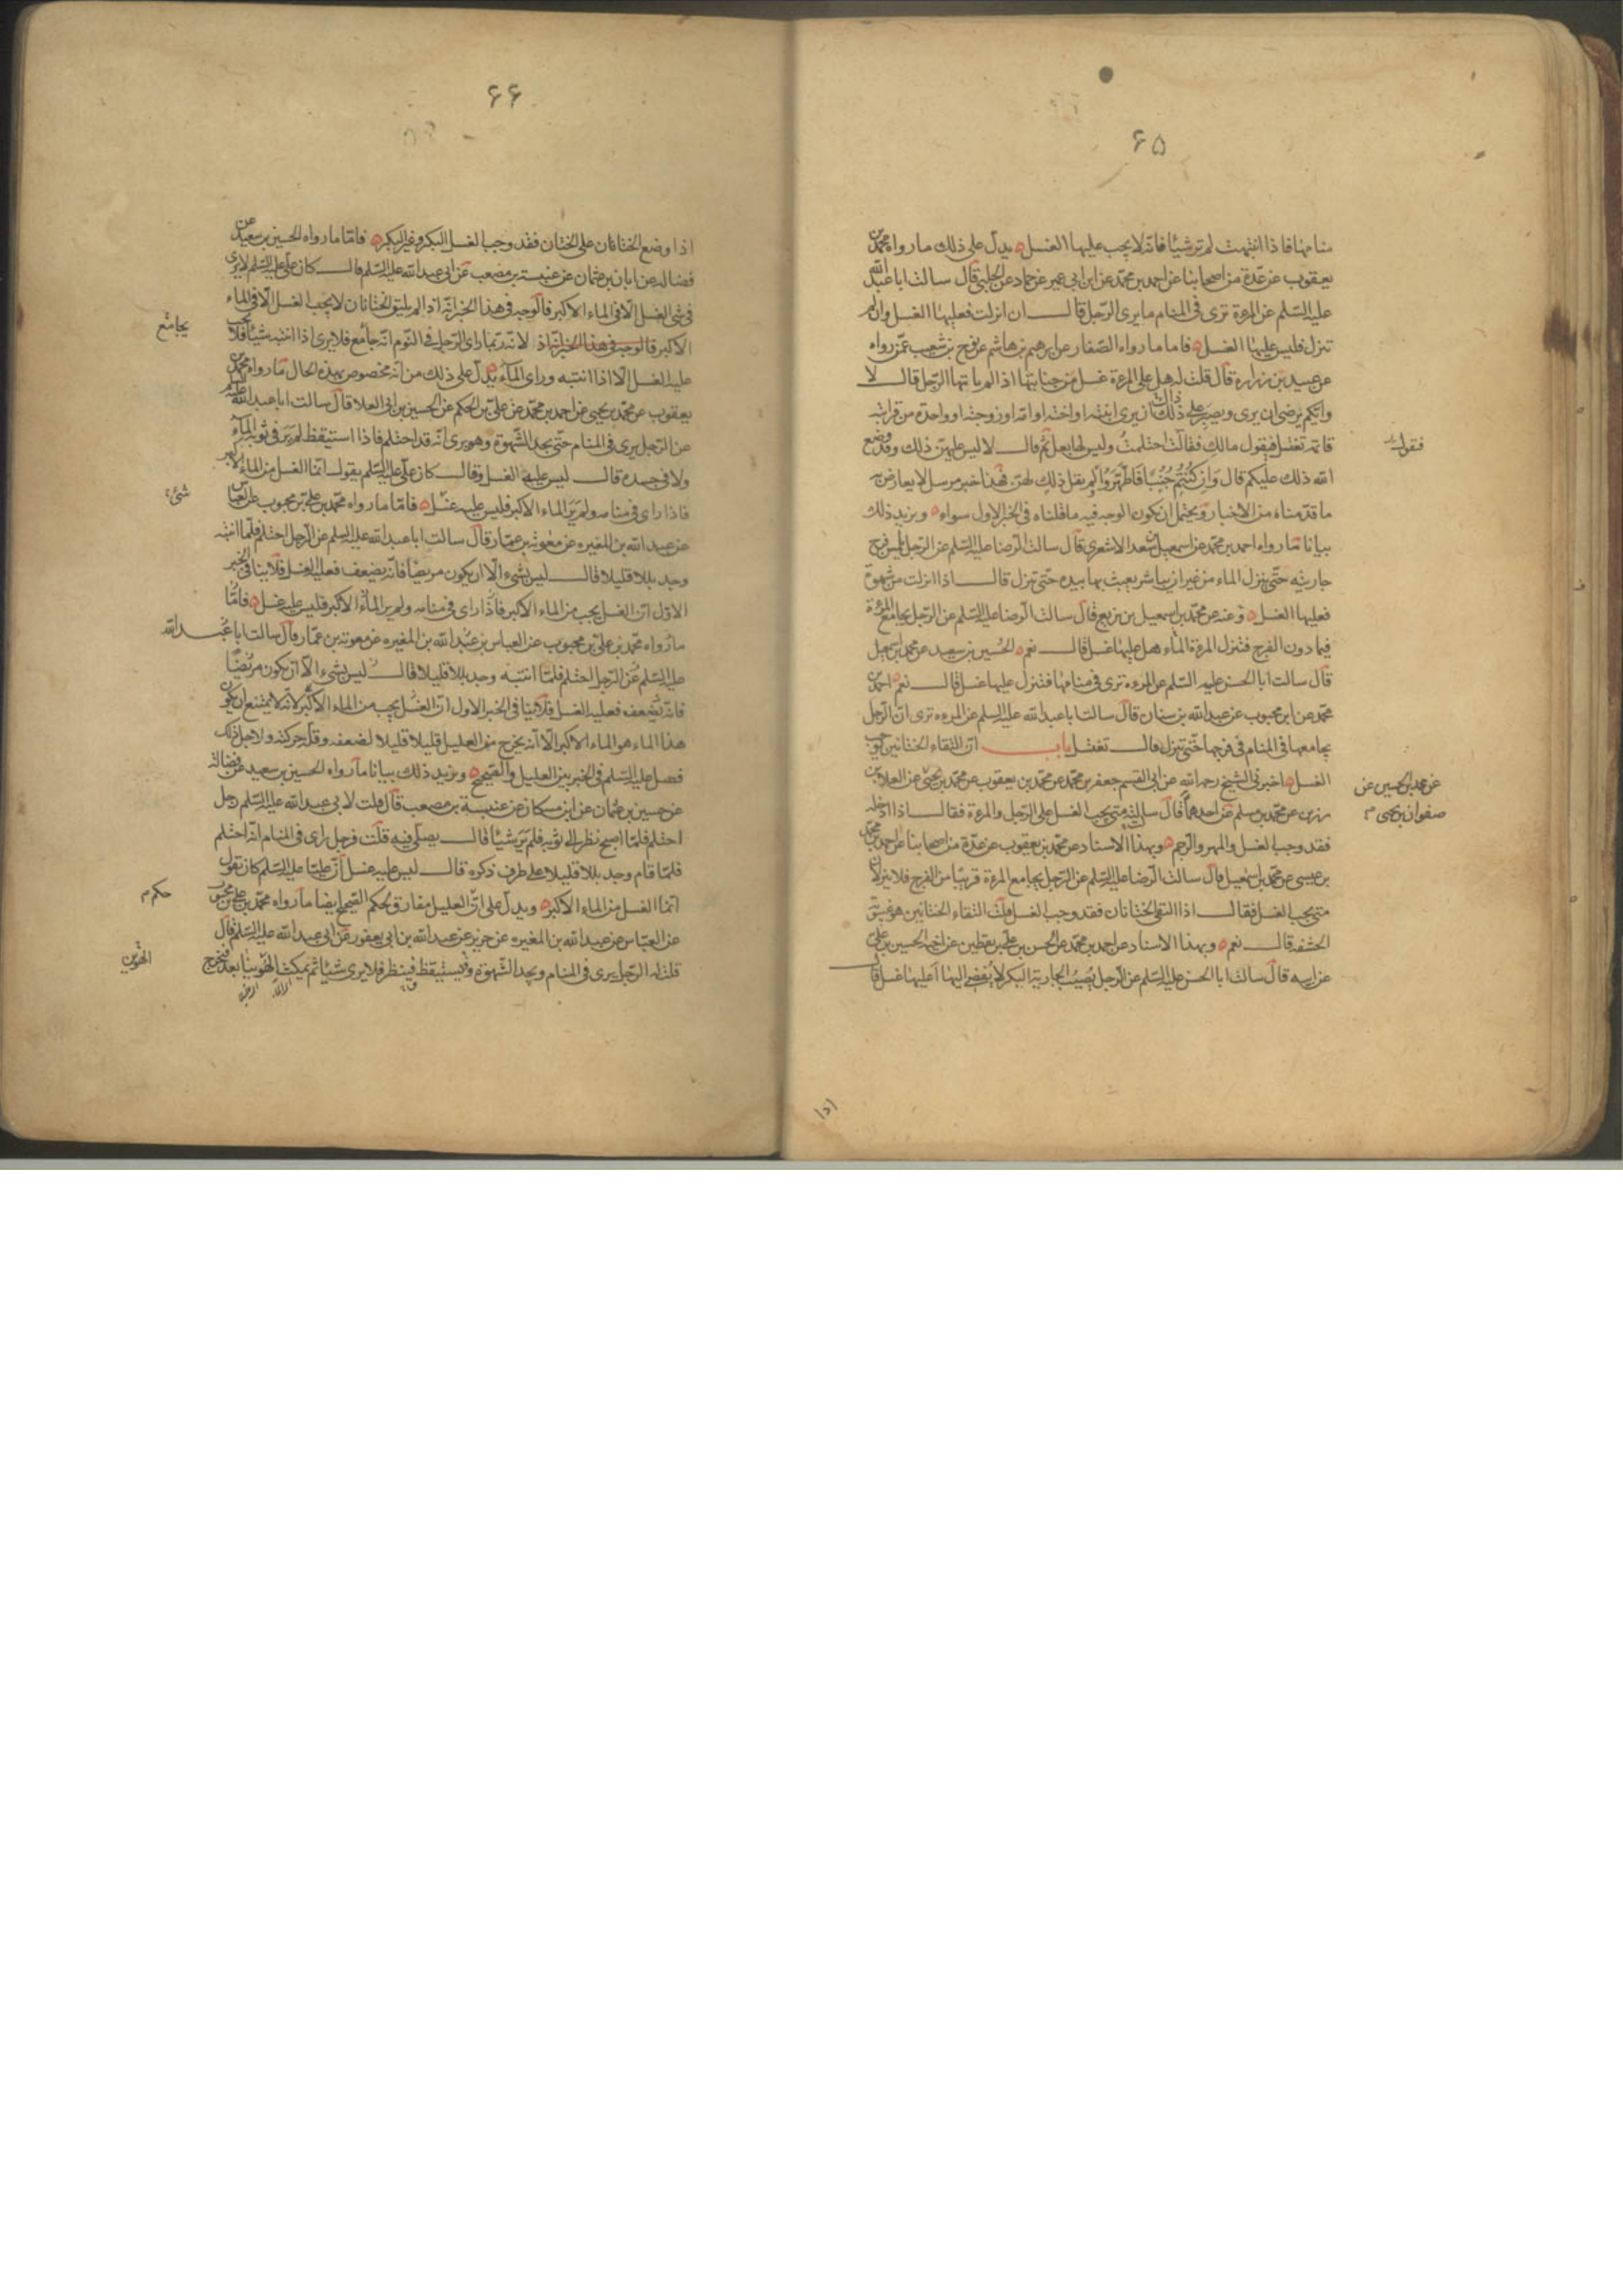 ۶۵
منامها فاذا انتبهت لم تر شيئا فانه لا يجب عليها الغسل يدل على ذلك ما رواه محمد بن
يعقوب عن عدة من اصحابنا عن احمد بن محمد عن ابن ابي عمير عن حماد عن الحلبي قال سالت ابا عبد الله
عليه السلم عن المرءة ترى في المنام ما يرى الرجل قال ان انزلت فعليها الغسل وان لم
تنزل فليس عليها الغسل فاما ما رواه الصفار عن ابرهيم بن هاشم عن نوح بن شعيب عمن رواه
عن عبيد بن زرارة قال قلت له هل على المرءة غسل من جنابتها اذا لم ياتها الرجل قال لا
وايكم يرضى ان يرى ويصبر على ذلك ان يرى ابنته او اخته او امه او زوجته او واحدة من قرابته
قائمة تغتسل فيقول مالك فقالت احتلمت وليس لها بعل ثم قال لا ليس عليهن ذلك وقد وضع
فقول
الله ذلك عليكم قال وان كنتم جنبا فاطهروا ولم يقل ذلك لهن فهذا خبر مرسل لا يعارض به
ما قدمناه من الاخبار ويحتمل ان يكون الوجه فيه ما قلناه في الخبر الاول سواء ويزيد ذلك
بيانا ما رواه احمد بن محمد عن اسمعيل بن سعد الاشعري قال سالت الرضا عليه السلم عن الرجل يلمس فرج
جاريته حتى ينزل الماء من غير ان يباشر يعبث بها بيده حتى تنزل قال اذا انزلت من شهوة
فعليها الغسل وعنه عن محمد بن اسمعيل بن بزيع قال سالت الرضا عليه السلم عن الرجل يجامع المرءة
فيما دون الفرج فتنزل المرءة الماء هل عليها غسل قال نعم الحسين بن سعيد عن محمد بن اسمعيل
قال سالت ابا الحسن عليه السلم عن المرءه ترى في منامها فتنزل عليها غسل قال نعم احمد بن
محمد عن ابن محبوب عن عبد الله بن سنان قال سالت ابا عبد الله عليه السلم عن المرءه ترى ان الرجل
يجامعها في المنام في فرجها حتى تنزل قال تغتسل باب ان التقاء الختانين يوجب
الغسل اخبرني الشيخ رحمه الله عن ابي القسم جعفر بن محمد عن محمد بن يعقوب عن محمد بن يحيى عن العلا بن
عن محمد بن الحسين عن
صفوان بن يحيى
رزين عن محمد بن مسلم عن احدهما قال سالته متى يجب الغسل على الرجل والمرءة فقال اذا ادخله
فقد وجب الغسل والمهر والرجم وبهذا الاسناد عن محمد بن يعقوب عن عدة من اصحابنا عن احمد بن محمد
بن عيسى عن محمد بن اسمعيل قال سالت الرضا عليه السلم عن الرجل يجامع المرءة قريبا من الفرج فلا ينزلان
متى يجب الغسل فقال اذا التقى الختانان فقد وجب الغسل قلت التقاء الختانين هو غيبوبة
الحشفه قال نعم وبهذا الاسناد عن احمد بن محمد عن الحسن بن علي بن يقطين عن اخيه الحسين بن علي
عن ابيه قال سالت ابا الحسن عليه السلم عن الرجل يصيب الجارية البكر لا يفضي اليها اعليها غسل قال
۶۶
اذا وضع الختان على الختان فقد وجب الغسل البكر وغير البكر فاما ما رواه الحسين بن سعيد عن
فضالة عن ابان بن عثمان عن عنبسة بن مصعب عن ابي عبد الله عليه السلم قال كان علي عليه السلم لا يرى
في شئ الغسل الا في الماء الاكبر فالوجه في هذا الخبر انه اذا لم يلتق الختانان لا يجب الغسل الا في الماء
الاكبر قالوجه في هذا الخبر انه اذ لانه ربما راى الرجل في النوم انه جامع فلا يرى اذا انتبه شيئا فلا يجب
يجامع
عليه الغسل الا اذا انتبه وراى الماء يدل على ذلك من انه مخصوص بهذه الحال ما رواه محمد بن
يعقوب عن محمد بن يحيى عن احمد بن محمد عن علي بن الحكم عن الحسين بن ابي العلا قال سالت ابا عبد الله عليه السلم
عن الرجل يرى في المنام حتى يجد الشهوة وهو يرى انه قد احتلم فاذا استيقظ لم ير في ثوبه الماء
ولا في جسده قال ليس عليه الغسل وقال كان علي عليه السلم يقول انما الغسل من الماء الاكبر
فاذا راى في منامه ولم ير الماء الاكبر فليس عليه غسل فاما ما رواه محمد بن علي بن محبوب عن العباس
شئ
عن عبد الله بن المغيره عن معوية بن عمار قال سالت ابا عبد الله عليه السلم عن الرجل احتلم فلما انتبه
وجد بللا قليلا قال ليس بشيء الا ان يكون مريضا فانه يضعف فعليه الغسل فلا ينافي الخبر
الاول ان الغسل يجب من الماء الاكبر فاذا راى في منامه ولم ير الماء الاكبر فليس عليه غسل فاما
ما رواه محمد بن علي بن محبوب عن العباس بن عبد الله بن المغيره عن معوية بن عمار قال سالت ابا عبد الله
عليه السلم عن الرجل احتلم فلما انتبه وجد بللا قليلا قال ليس بشيء الا ان يكون مريضا
فانه يضعف فعليه الغسل فلا ينافي الخبر الاول ان الغسل يجب من الماء الاكبر لانه لا يمتنع ان يكون
هذا الماء هو الماء الاكبر الا انه يخرج من العليل قليلا قليلا لضعفه وقلة حركته ولاجل ذلك
فصل عليه السلم في الخبر بين العليل والصحيح ويزيد ذلك بيانا ما رواه الحسين بن سعيد عن فضالة
عن حسين بن عثمان عن ابن مسكان عن عنبسة بن مصعب قال قلت لابي عبد الله عليه السلم رجل
احتلم فلما اصبح نظر الى ثوبه فلم ير شيئا قال يصلي فيه قلت فرجل راى في المنام انه احتلم
فلما قام وجد بللا قليلا على طرف ذكره قال ليس عليه غسل ان عليا عليه السلم كان يقول
انما الغسل من الماء الاكبر ويدل على ان العليل مفارق لحكم الصحيح ايضا ما رواه محمد بن علي بن محبوب
حكم م
عن العباس عن عبد الله بن المغيره عن حريز عن عبد الله بن ابي يعفور عن ابي عبد الله عليه السلم قال
قلت له الرجل يرى في المنام ويجد الشهوة ويستيقظ فينظر فلا يرى شيئا ثم يمكث الهوينا بعد فيخرج
الهوين